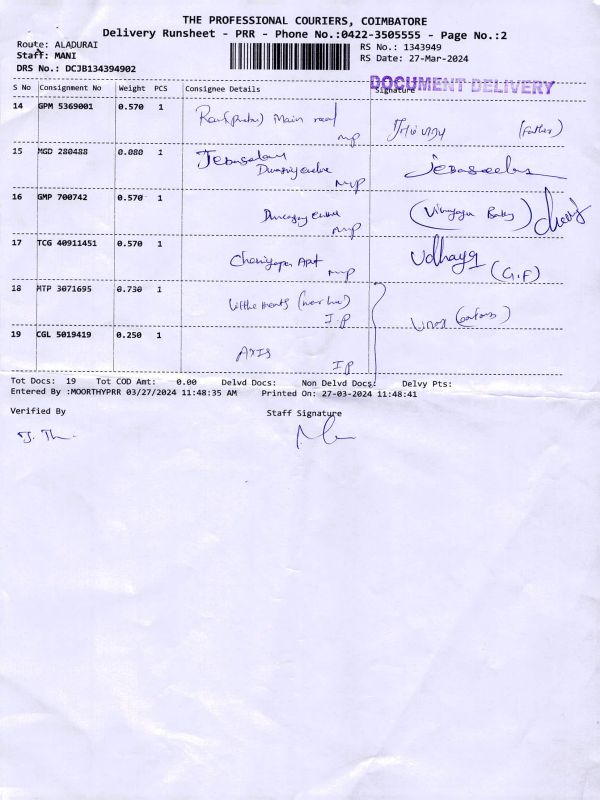 THE PROFESSIONAL COURIERS, COIMBATORE
Delivery Runsheet - PRR - Phone No.:0422-3505555 - Page No.:2
Route: ALADURAI
Staff: MANI
DRS No.: DCJB134394902
RS No.: 1343949
RS Date: 27-Mar-2024
DOCUMENT DELIVERY
S No Consignment No Weight PCS Consignee Details Signature
14 GPM 5369001 0.570 1 Main road (Father)
15 MGD 280488 0.080 1
16 GMP 700742 0.570 1
17 TCG 40911451 0.570 1 Apt Udhaya (G.F)
18 MTP 3071695 0.730 1
I.P
19 CGL 5019419 0.250 1 AXIS
I P
Tot Docs: 19 Tot COD Amt: 0.00 Delvd Docs: Non Delvd Docs: Delvy Pts:
Entered By :MOORTHYPRR 03/27/2024 11:48:35 AM Printed On: 27-03-2024 11:48:41
Verified By Staff Signature